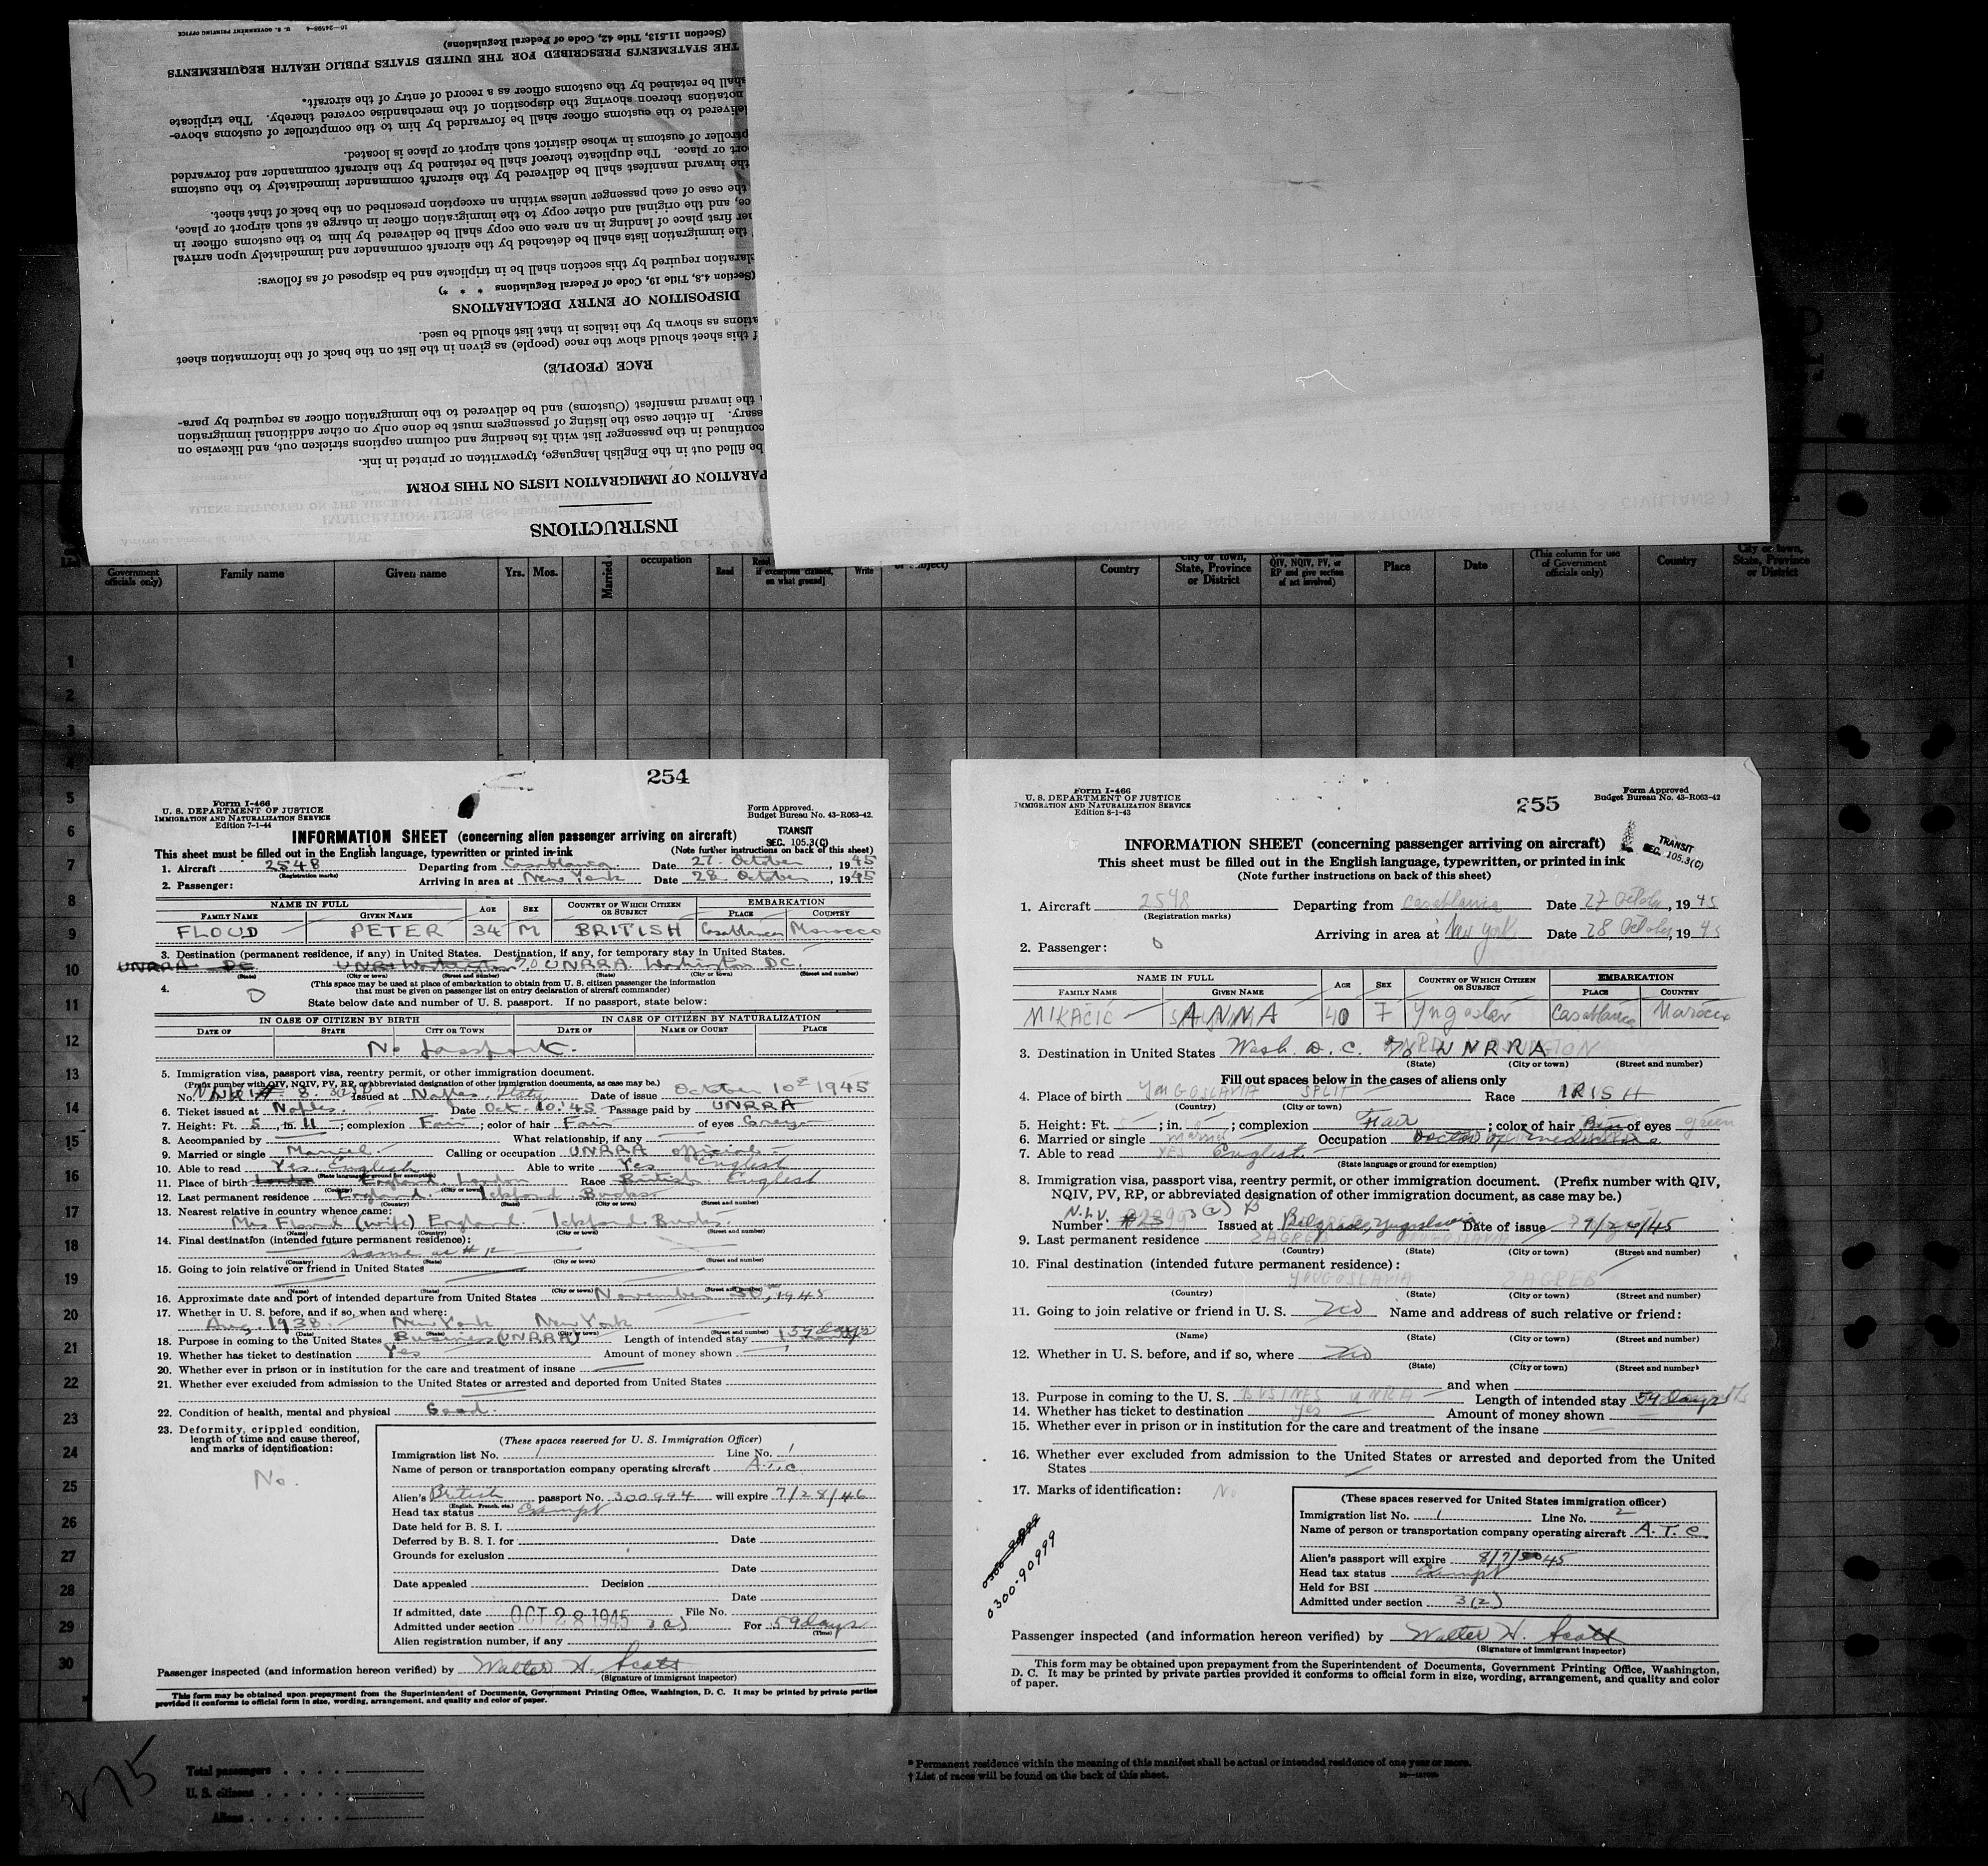 INSTRUCTIONS
PARATION OF IMMIGRATION LISTS ON THIS FORM
be filled out in the English language, typewritten or printed in ink.
continued in the passenger list with its heading and column captions stricken out, and likewise on
ssary. In either case the listing of passengers must be done only on other additional immigration
the inward manifest (Customs) and be delivered to the immigration officer as required by para-
RACE (PEOPLE)
f this sheet should show the race (people) as given in the list on the back of the information sheet
ations as shown by the italics in that list should be used.
DISPOSITION OF ENTRY DECLARATIONS
(Section 4.8, Title 19, Code of Federal Regulations * * *)
laration required by this section shall be in triplicate and be disposed of as follows:
the immigration lists shall be detached by the aircraft commander and immediately upon arrival
er first place of landing in an area one copy shall be delivered by him to the customs officer in
ce, and the original and other copy to the immigration officer in charge at such airport or place,
the case of each passenger unless within an exception prescribed on the back of that sheet.
the inward manifest shall be delivered by the aircraft commander immediately to the customs
ort or place. The duplicate thereof shall be retained by the aircraft commander and forwarded
ptroller of customs in whose district such airport or place is located.
delivered to the customs officer shall be forwarded by him to the comptroller of customs above-
notations thereon showing the disposition of the merchandise covered thereby. The triplicate
shall be retained by the customs officer as a record of entry of the aircraft.
THE STATEMENTS PRESCRIBED FOR THE UNITED STATES PUBLIC HEALTH REQUIREMENTS
(Section 11.513, Title 42, Code of Federal Regulations)
16—24598-4 U. S. GOVERNMENT PRINTING OFFICE
Government officials only) Family name Given name Yrs. Mos. Married occupation Read Write
Country City or town, State, Province or District QIV, NQIV, PV, or RP and give section of act involved) Place Date (This column for use of Government officials only) Country City or town, State, Province or District
254
Form I-466
U. S. DEPARTMENT OF JUSTICE
IMMIGRATION AND NATURALIZATION SERVICE
Edition 7-1-44
Form Approved.
Budget Bureau No. 43-R063-42.
INFORMATION SHEET (concerning alien passenger arriving on aircraft)
TRANSIT
SEC. 105.3(C)
This sheet must be filled out in the English language, typewritten or printed in ink (Note further instructions on back of this sheet)
1. Aircraft 2548 Departing from Casablanca Date 27 October, 1945
(Registration marks)
2. Passenger: Arriving in area at New York Date 28 October, 1945
NAME IN FULL AGE SEX COUNTRY OF WHICH CITIZEN OR SUBJECT EMBARKATION
FAMILY NAME GIVEN NAME PLACE COUNTRY
FLOUD PETER 34 M BRITISH Casablanca Morocco
3. Destination (permanent residence, if any) in United States. Destination, if any, for temporary stay in United States.
UNRRA DC UNRRA Washington DC.
(State) (City or town) (Street and number) (State) (City or town) (Street and number)
4. (This space may be used at place of embarkation to obtain from U. S. citizen passenger the information
that must be given on passenger list on entry declaration of aircraft commander)
State below date and number of U. S. passport. If no passport, state below:
IN CASE OF CITIZEN BY BIRTH IN CASE OF CITIZEN BY NATURALIZATION
DATE OF STATE CITY OR TOWN DATE OF NAME OF COURT PLACE
No passport.
5. Immigration visa, passport visa, reentry permit, or other immigration document.
(Prefix number with QIV, NQIV, PV, RP, or abbreviated designation of other immigration documents, as case may be.)
No. Issued at Naples. Italy Date of issue October 10 1945
6. Ticket issued at Naples. Date Oct. 10. '45 Passage paid by UNRRA
7. Height: Ft. 5, in. 11; complexion Fair; color of hair Fair of eyes Grey
8. Accompanied by What relationship, if any
9. Married or single Married Calling or occupation UNRRA official
10. Able to read Yes. English Able to write Yes English
(State language or ground for exemption)
11. Place of birth London England. London Race British English
(Country) (City or town)
12. Last permanent residence England. Ickford Bucks
(Country) (City or town) (Street and number)
13. Nearest relative in country whence came:
Mrs Floud (wife) England. Ickford Bucks.
(Name) (Country) (City or town) (Street and number)
14. Final destination (intended future permanent residence):
same as #12
(Country) (State) (City or town) (Street and number)
15. Going to join relative or friend in United States
(Name) (State) (City or town) (Street and number)
16. Approximate date and port of intended departure from United States November 30, 1945
17. Whether in U. S. before, and if so, when and where:
Aug. 1938. New York New York
(Date) (State) (City or town) (Street and number)
18. Purpose in coming to the United States Business (UNRRA) Length of intended stay 59 days
19. Whether has ticket to destination Yes Amount of money shown
20. Whether ever in prison or in institution for the care and treatment of insane
21. Whether ever excluded from admission to the United States or arrested and deported from United States
22. Condition of health, mental and physical Good.
23. Deformity, crippled condition,
length of time and cause thereof,
and marks of identification:
No.
(These spaces reserved for U. S. Immigration Officer)
Immigration list No. 1 Line No. 1
Name of person or transportation company operating aircraft A.T.C
Alien's British passport No. 300994 will expire 7/28/46
(English, French, etc.)
Head tax status Exempt
Date held for B. S. I.
Deferred by B. S. I. for Date
Grounds for exclusion
Date
Date appealed Decision
Date
If admitted, date OCT 28 1945 File No.
Admitted under section 3(2) For 59 days
(Time)
Alien registration number, if any
Passenger inspected (and information hereon verified) by Walter H. Scott
(Signature of immigrant inspector)
This form may be obtained upon prepayment from the Superintendent of Documents, Government Printing Office, Washington, D. C. It may be printed by private parties
provided it conforms to official form in size, wording, arrangement, and quality and color of paper.
255
Form I-466
U. S. DEPARTMENT OF JUSTICE
IMMIGRATION AND NATURALIZATION SERVICE
Edition 8-1-43
Form Approved
Budget Bureau No. 43-R063-42
INFORMATION SHEET (concerning passenger arriving on aircraft)
TRANSIT
SEC. 105.3(C)
This sheet must be filled out in the English language, typewritten, or printed in ink
(Note further instructions on back of this sheet)
1. Aircraft 2548 Departing from Casablanca Date 27 October, 1945
(Registration marks)
Arriving in area at New York Date 28 October, 1945
2. Passenger:
NAME IN FULL AGE SEX COUNTRY OF WHICH CITIZEN OR SUBJECT EMBARKATION
FAMILY NAME GIVEN NAME PLACE COUNTRY
MIKACIC ANNA 40 F Yugoslav Casablanca Morocco
3. Destination in United States Wash. D. C. c/o UNRRA
(State) (City or town) (Street and number)
Fill out spaces below in the cases of aliens only
4. Place of birth YOUGOSLAVIA SPLIT Race IRISH
(Country) (City or town)
5. Height: Ft. ; in. ; complexion Fair; color of hair of eyes green
6. Married or single Occupation Doctor of medicine
7. Able to read YES English
(State language or ground for exemption)
8. Immigration visa, passport visa, reentry permit, or other immigration document. (Prefix number with QIV,
NQIV, PV, RP, or abbreviated designation of other immigration document, as case may be.)
Number Issued at Belgrade, Yugoslavia Date of issue
9. Last permanent residence ZAGREB YOUGOSLAVIA
(Country) (State) (City or town) (Street and number)
10. Final destination (intended future permanent residence):
YOUGOSLAVIA ZAGREB
(Country) (State) (City or town) (Street and number)
11. Going to join relative or friend in U. S. no Name and address of such relative or friend:
(Name) (State) (City or town) (Street and number)
12. Whether in U. S. before, and if so, where no
(State) (City or town) (Street and number)
and when
13. Purpose in coming to the U. S. BUSINES UNRRA Length of intended stay 59 days
14. Whether has ticket to destination yes Amount of money shown
15. Whether ever in prison or in institution for the care and treatment of the insane
16. Whether ever excluded from admission to the United States or arrested and deported from the United
States
17. Marks of identification: No
0300-90999
(These spaces reserved for United States immigration officer)
Immigration list No. 1 Line No. 2
Name of person or transportation company operating aircraft A.T.C.
Alien's passport will expire 8/7/45
Head tax status Exempt
Held for BSI
Admitted under section 3(2)
Passenger inspected (and information hereon verified) by Walter H. Scott
(Signature of immigrant inspector)
This form may be obtained upon prepayment from the Superintendent of Documents, Government Printing Office, Washington,
D. C. It may be printed by private parties provided it conforms to official form in size, wording, arrangement, and quality and color
of paper.
1
2
3
4
5
6
7
8
9
10
11
12
13
14
15
16
17
18
19
20
21
22
23
24
25
26
27
28
29
30
275
Total passengers
U. S. citizens
Aliens
* Permanent residence within the meaning of this manifest shall be actual or intended residence of one year or more.
† List of races will be found on the back of this sheet.